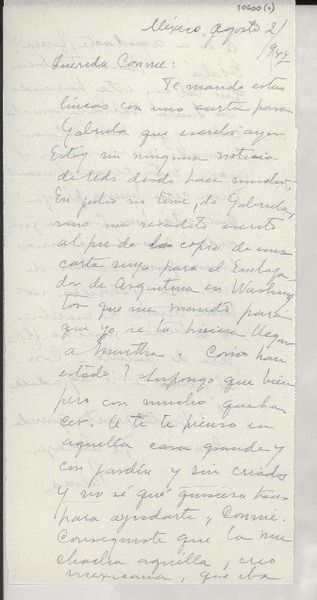 10600 (1)
México, agosto 2/
1947
Querida Connie:
Te mando estas
líneas con una carta para
Gabriela que escribí ayer.
Estoy sin ninguna noticia
de Uds desde hace mucho.
En julio no tuve, de Gabriela,
sino un recadito escrito
al pie de la copia de una
carta suya para el Embaja
dor de Argentina en Washing
ton que me mandó para
que yo se la hiciera llegar
a Martha. Cómo han
estado? Supongo que bien
pero con mucho queha
cer. A ti te pienso en
aquella casa grande y
con jardín y sin criados
y no sé qué quisiera hacer
para ayudarte, Connie.
Conseguiste que la mu
chacha aquella, creo
mexicana, que iba